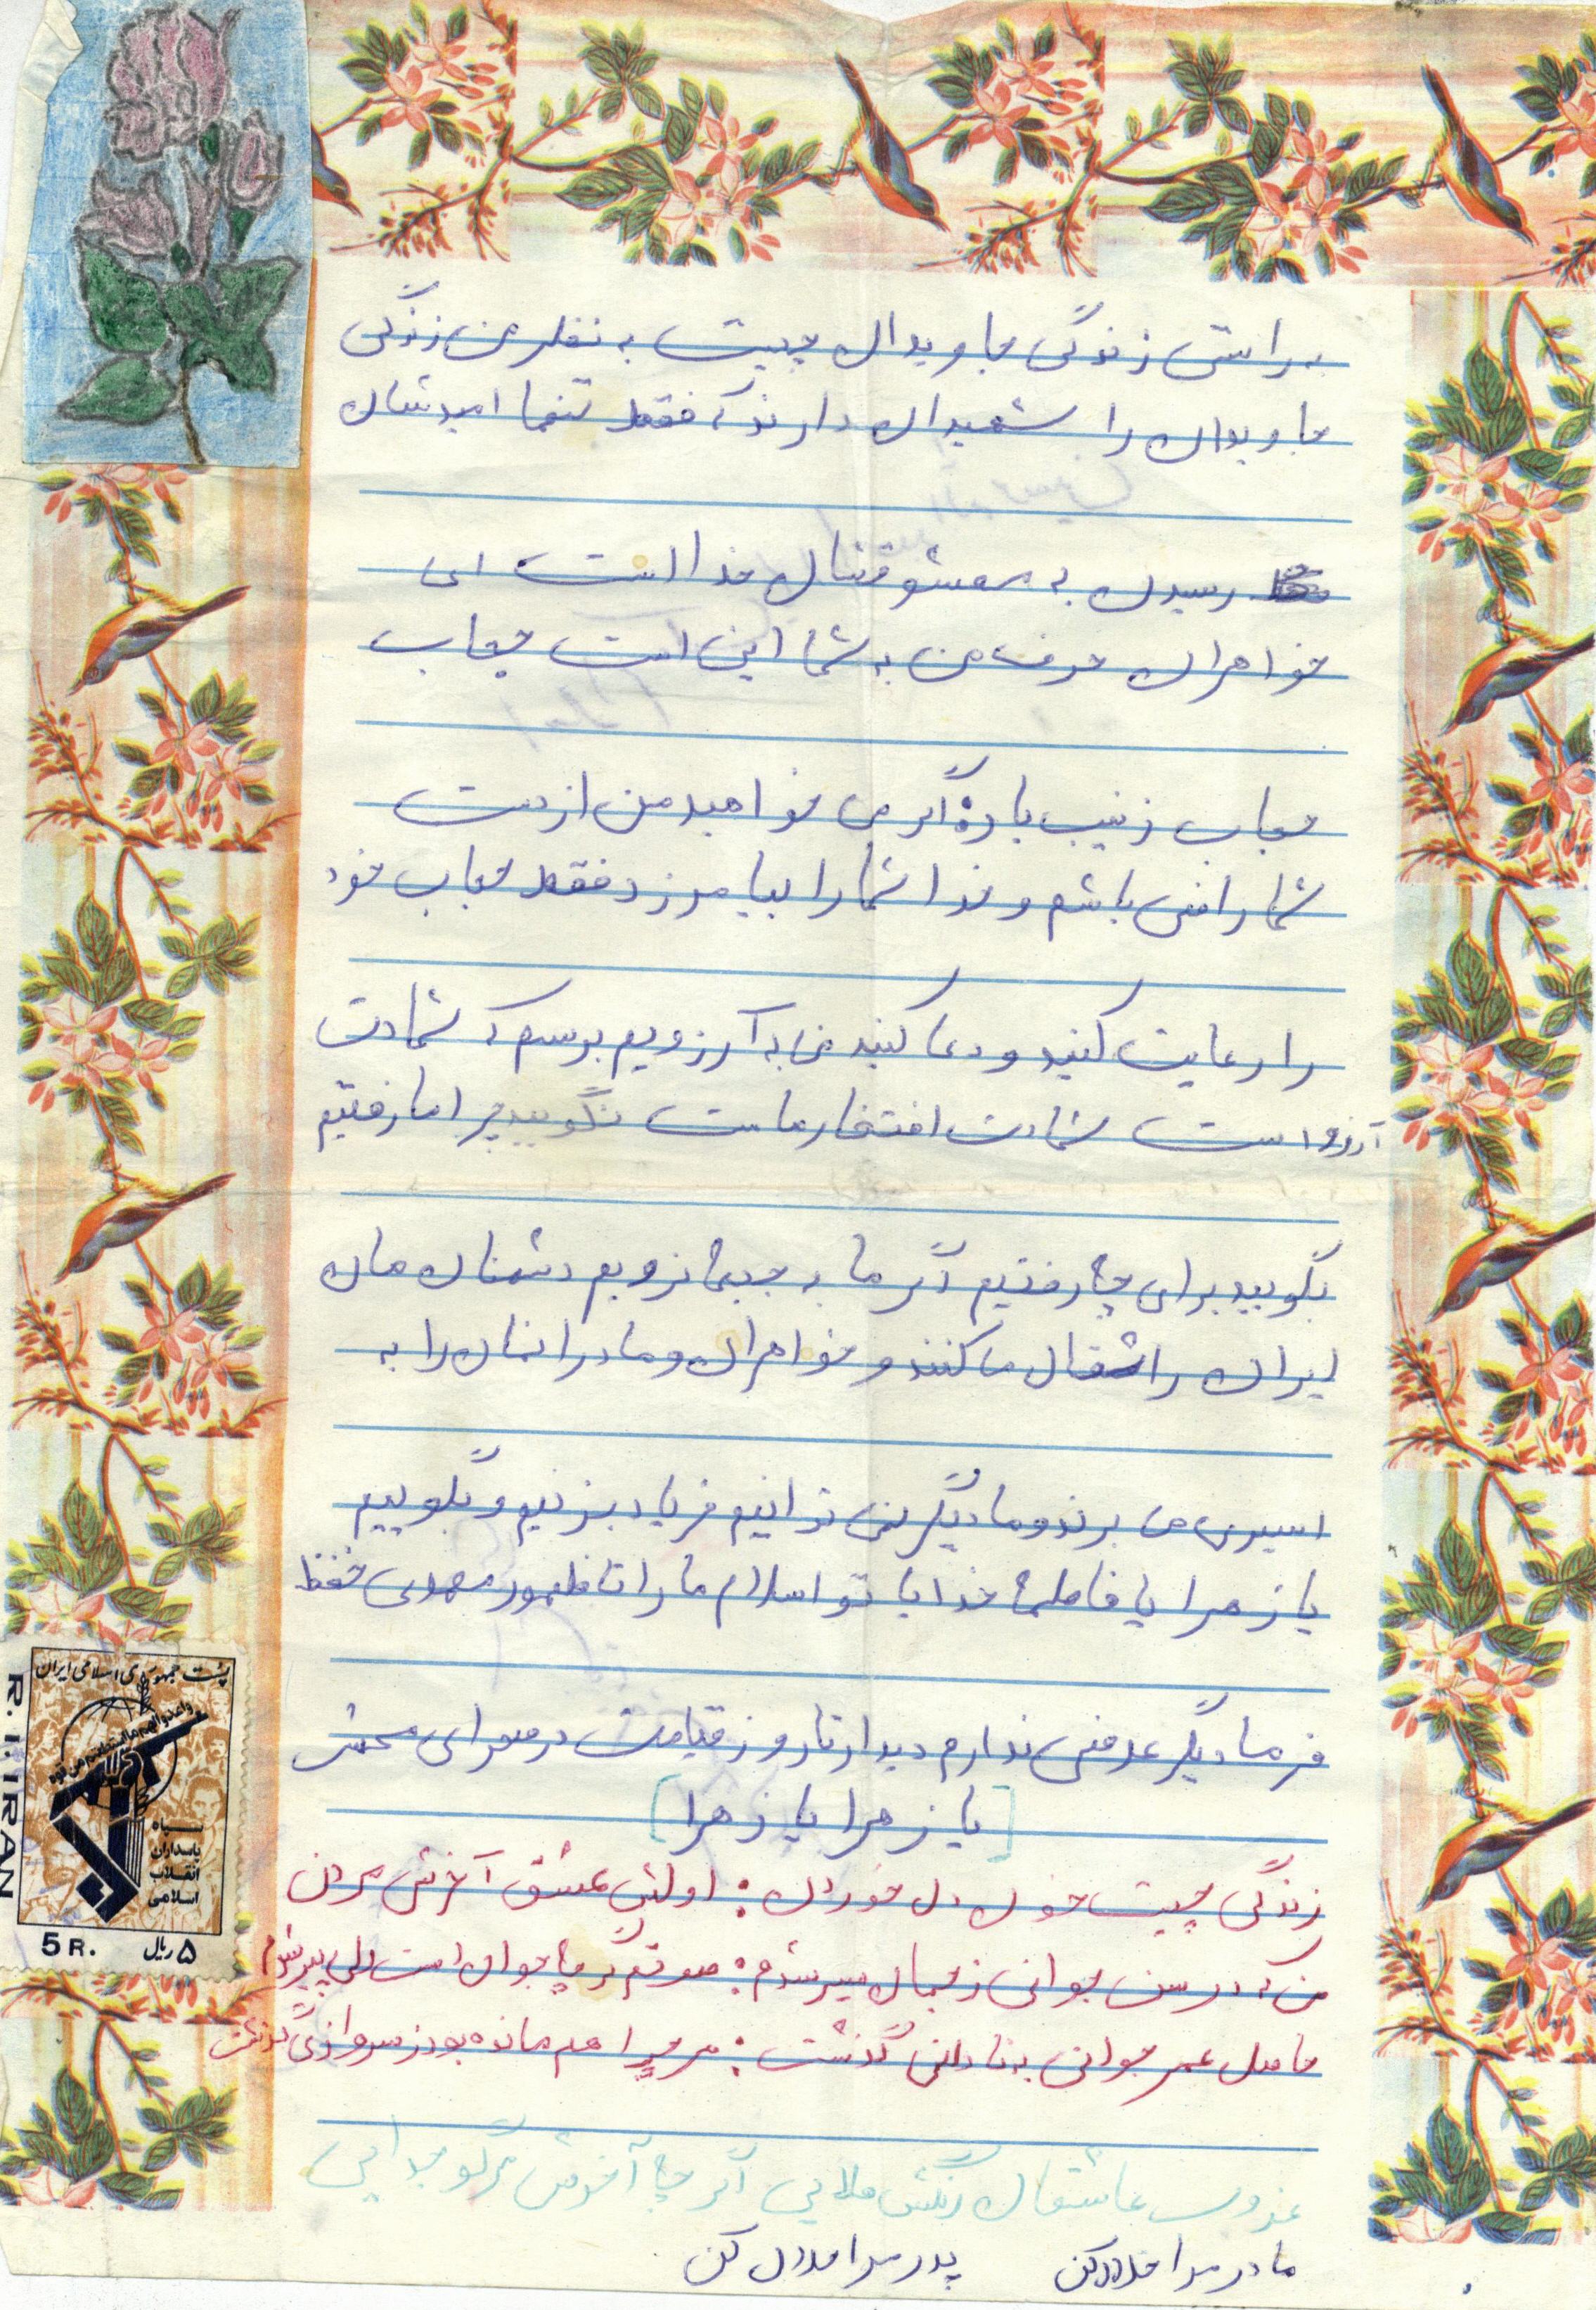 به راستی زندگی جاویدان چیست به نظر من زندگی
جاویدان را شهیدان دارند که فقط تنها امیدشان
رسیدن به معشوقشان خدا است ای
خواهران حرف من به شما این است حجاب
حجاب زینب باره اگر می خواهید من از دست
شما راضی باشم و خدا شما را بیامرزد فقط حجاب خود
را رعایت کنید و دعا کنید من به آرزویم برسم که شهادت
آرزو است شهادت افتخار ماست نگویید چرا ما رفتیم
بگویید برای چه رفتیم اگر ما به جبهه نرویم دشمنان مان
ایران را اشغال ما کنند و خواهران و مادرانمان را به
اسیری می برند و ما دیگر نمی توانیم فریاد بزنیم و بگوییم
یا زهرا یا فاطمه خدایا تو اسلام ما را تا ظهور مهدی حفظ
فرما دیگر عرضی ندارم دیدار تا روز قیامت در صحرای محشر
[یا زهرا یا زهرا]
زندگی چیست خون دل خوردن : اولش عشق آخرش مردن
من که در سن جوانی ز جهان سیر شدم : صورتم گر چه جوان است دلی پیر شدم
حاصل عمر جوانی به نادانی گذشت : هر چه را هم مانده بود ز سرو آزادی گذشت
عروس عاشقان رنگش طلایی اگر چه آخرش مرگ و جدایی
مادر مرا حلال کن پدر مرا حلال کن
پست جمهوری اسلامی ایران
سپاه
پاسداران
انقلاب
اسلامی
R. I. IRAN
5 R. ۵ ریال